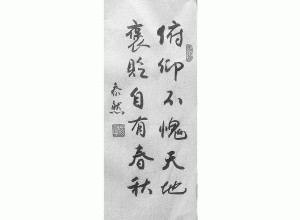 俯仰不愧天地
褒貶自有春秋
泰然